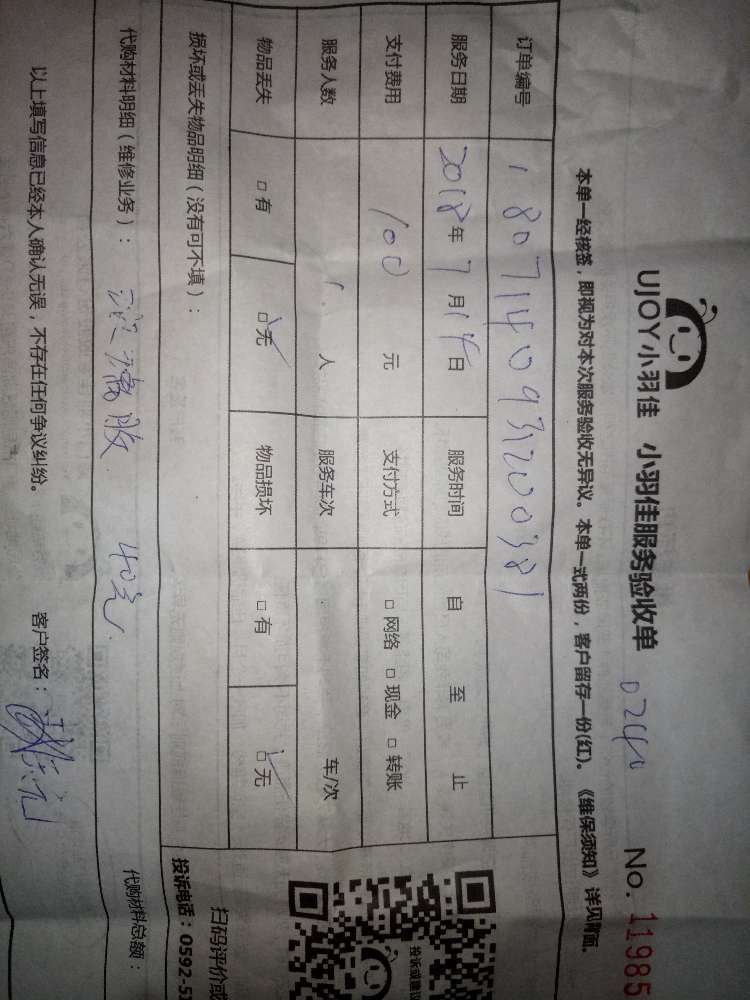 UJOY小羽佳 小羽佳服务验收单 0240 No. 11985
本单一经核签，即视为对本次服务验收无异议。本单一式两份，客户留存一份(红)。《维保须知》详见背面。
订单编号 1807140931200381
服务日期 2018年7月14日 服务时间 自 至 止
支付费用 100元 支付方式 □网络 □现金 □转账
服务人数 1人 服务车次 车/次
物品丢失 □有 □无 物品损坏 □有 □无
损坏或丢失物品明细（没有可不填）：
扫码评价或
投诉电话：0592-5
投诉或建议
代购材料明细（维修业务）： 40元 代购材料总额：
以上填写信息已经本人确认无误，不存在任何争议纠纷。 客户签名：